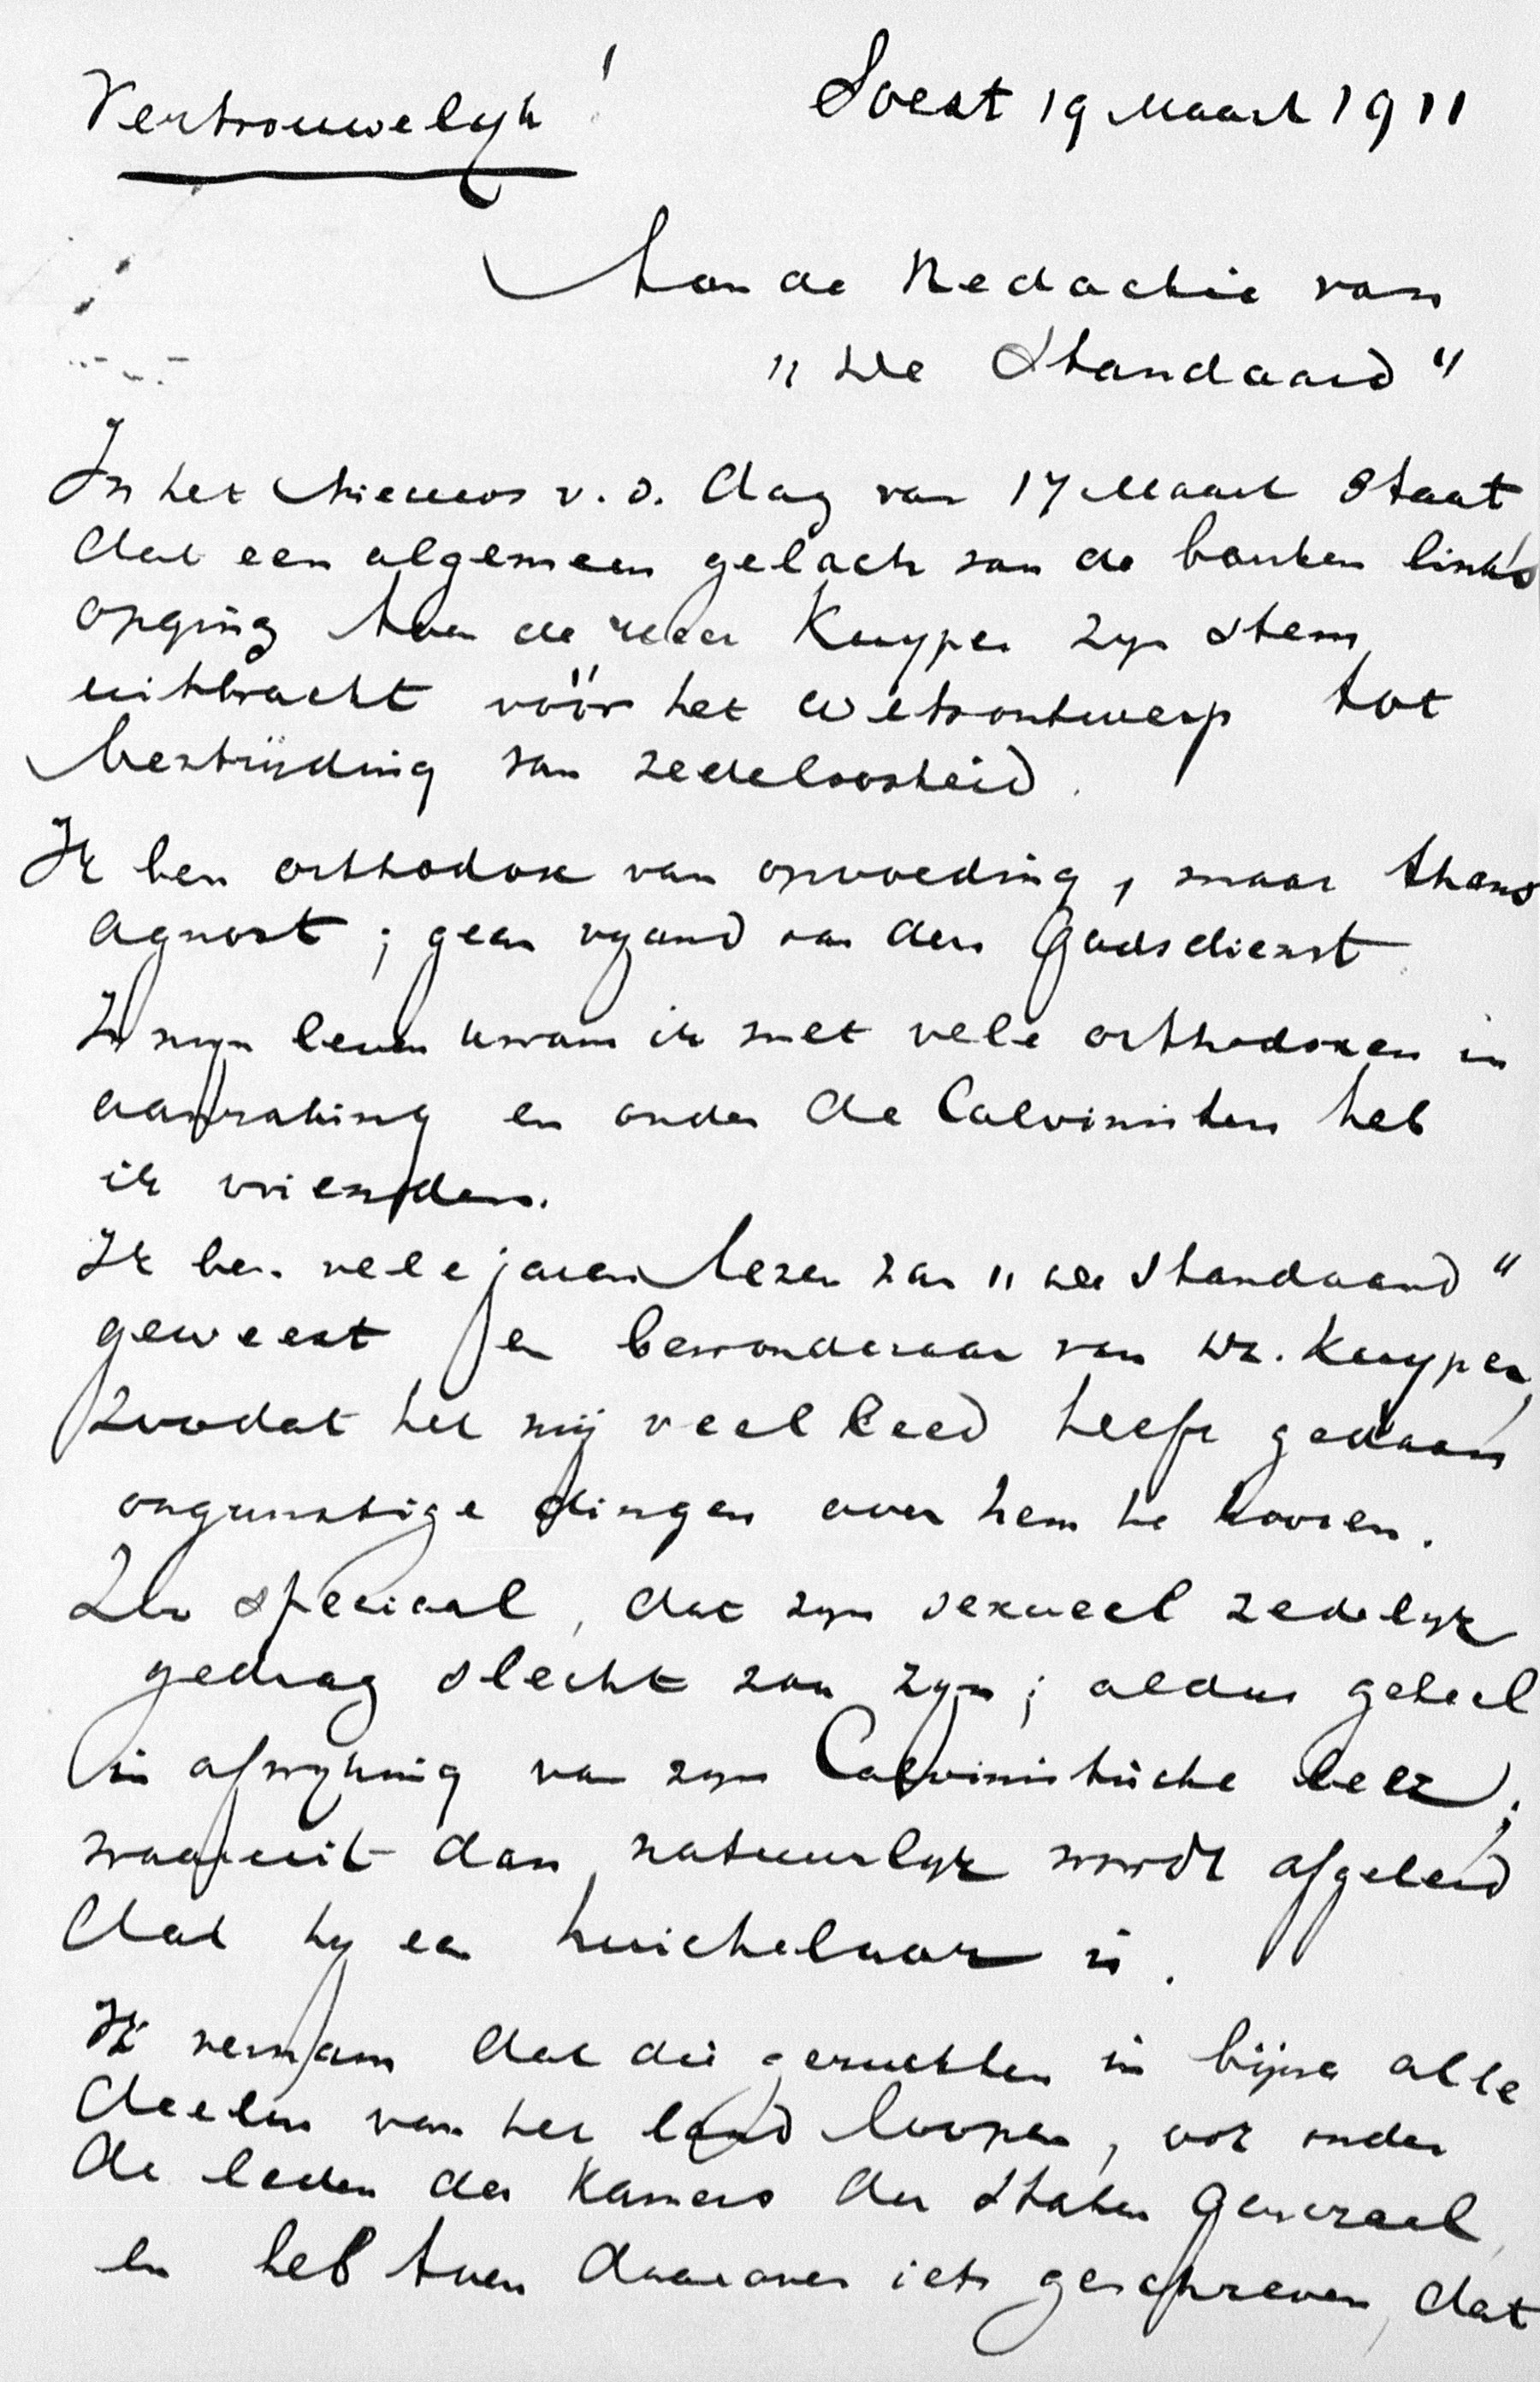 Vertrouwelijk!
Soest 19 Maart 1911
Aan de Redactie van
"De Standaard"
In het Nieuws v. d. Dag van 17 Maart staat
dat een algemeen gelach van de banken links
opging toen de heer Kuyper zijn stem
uitbracht vóór het wetsontwerp tot
bestrijding van zedeloosheid.
Ik ben orthodox van opvoeding, maar thans
agnost; geen vijand van den Godsdienst.
In mijn leven kwam ik met vele orthodoxen in
aanraking en onder de Calvinisten heb
ik vrienden.
Ik ben vele jaren lezer van "De Standaard"
geweest en bewonderaar van Dr. Kuyper,
zoodat het mij veel leed heeft gedaan
ongunstige dingen over hem te hooren.
Zoo speciaal, dat zijn sexueel zedelijk
gedrag slecht zou zijn; aldus geheel
in afwijking van zijn Calvinistische leer;
waaruit dan natuurlijk wordt afgeleid
dat hij een huichelaar is.
Ik vernam dat die geruchten in bijna alle
deelen van het land loopen, ook onder
de leden der Kamers der Staten Generaal,
en heb toen daarover iets geschreven, dat